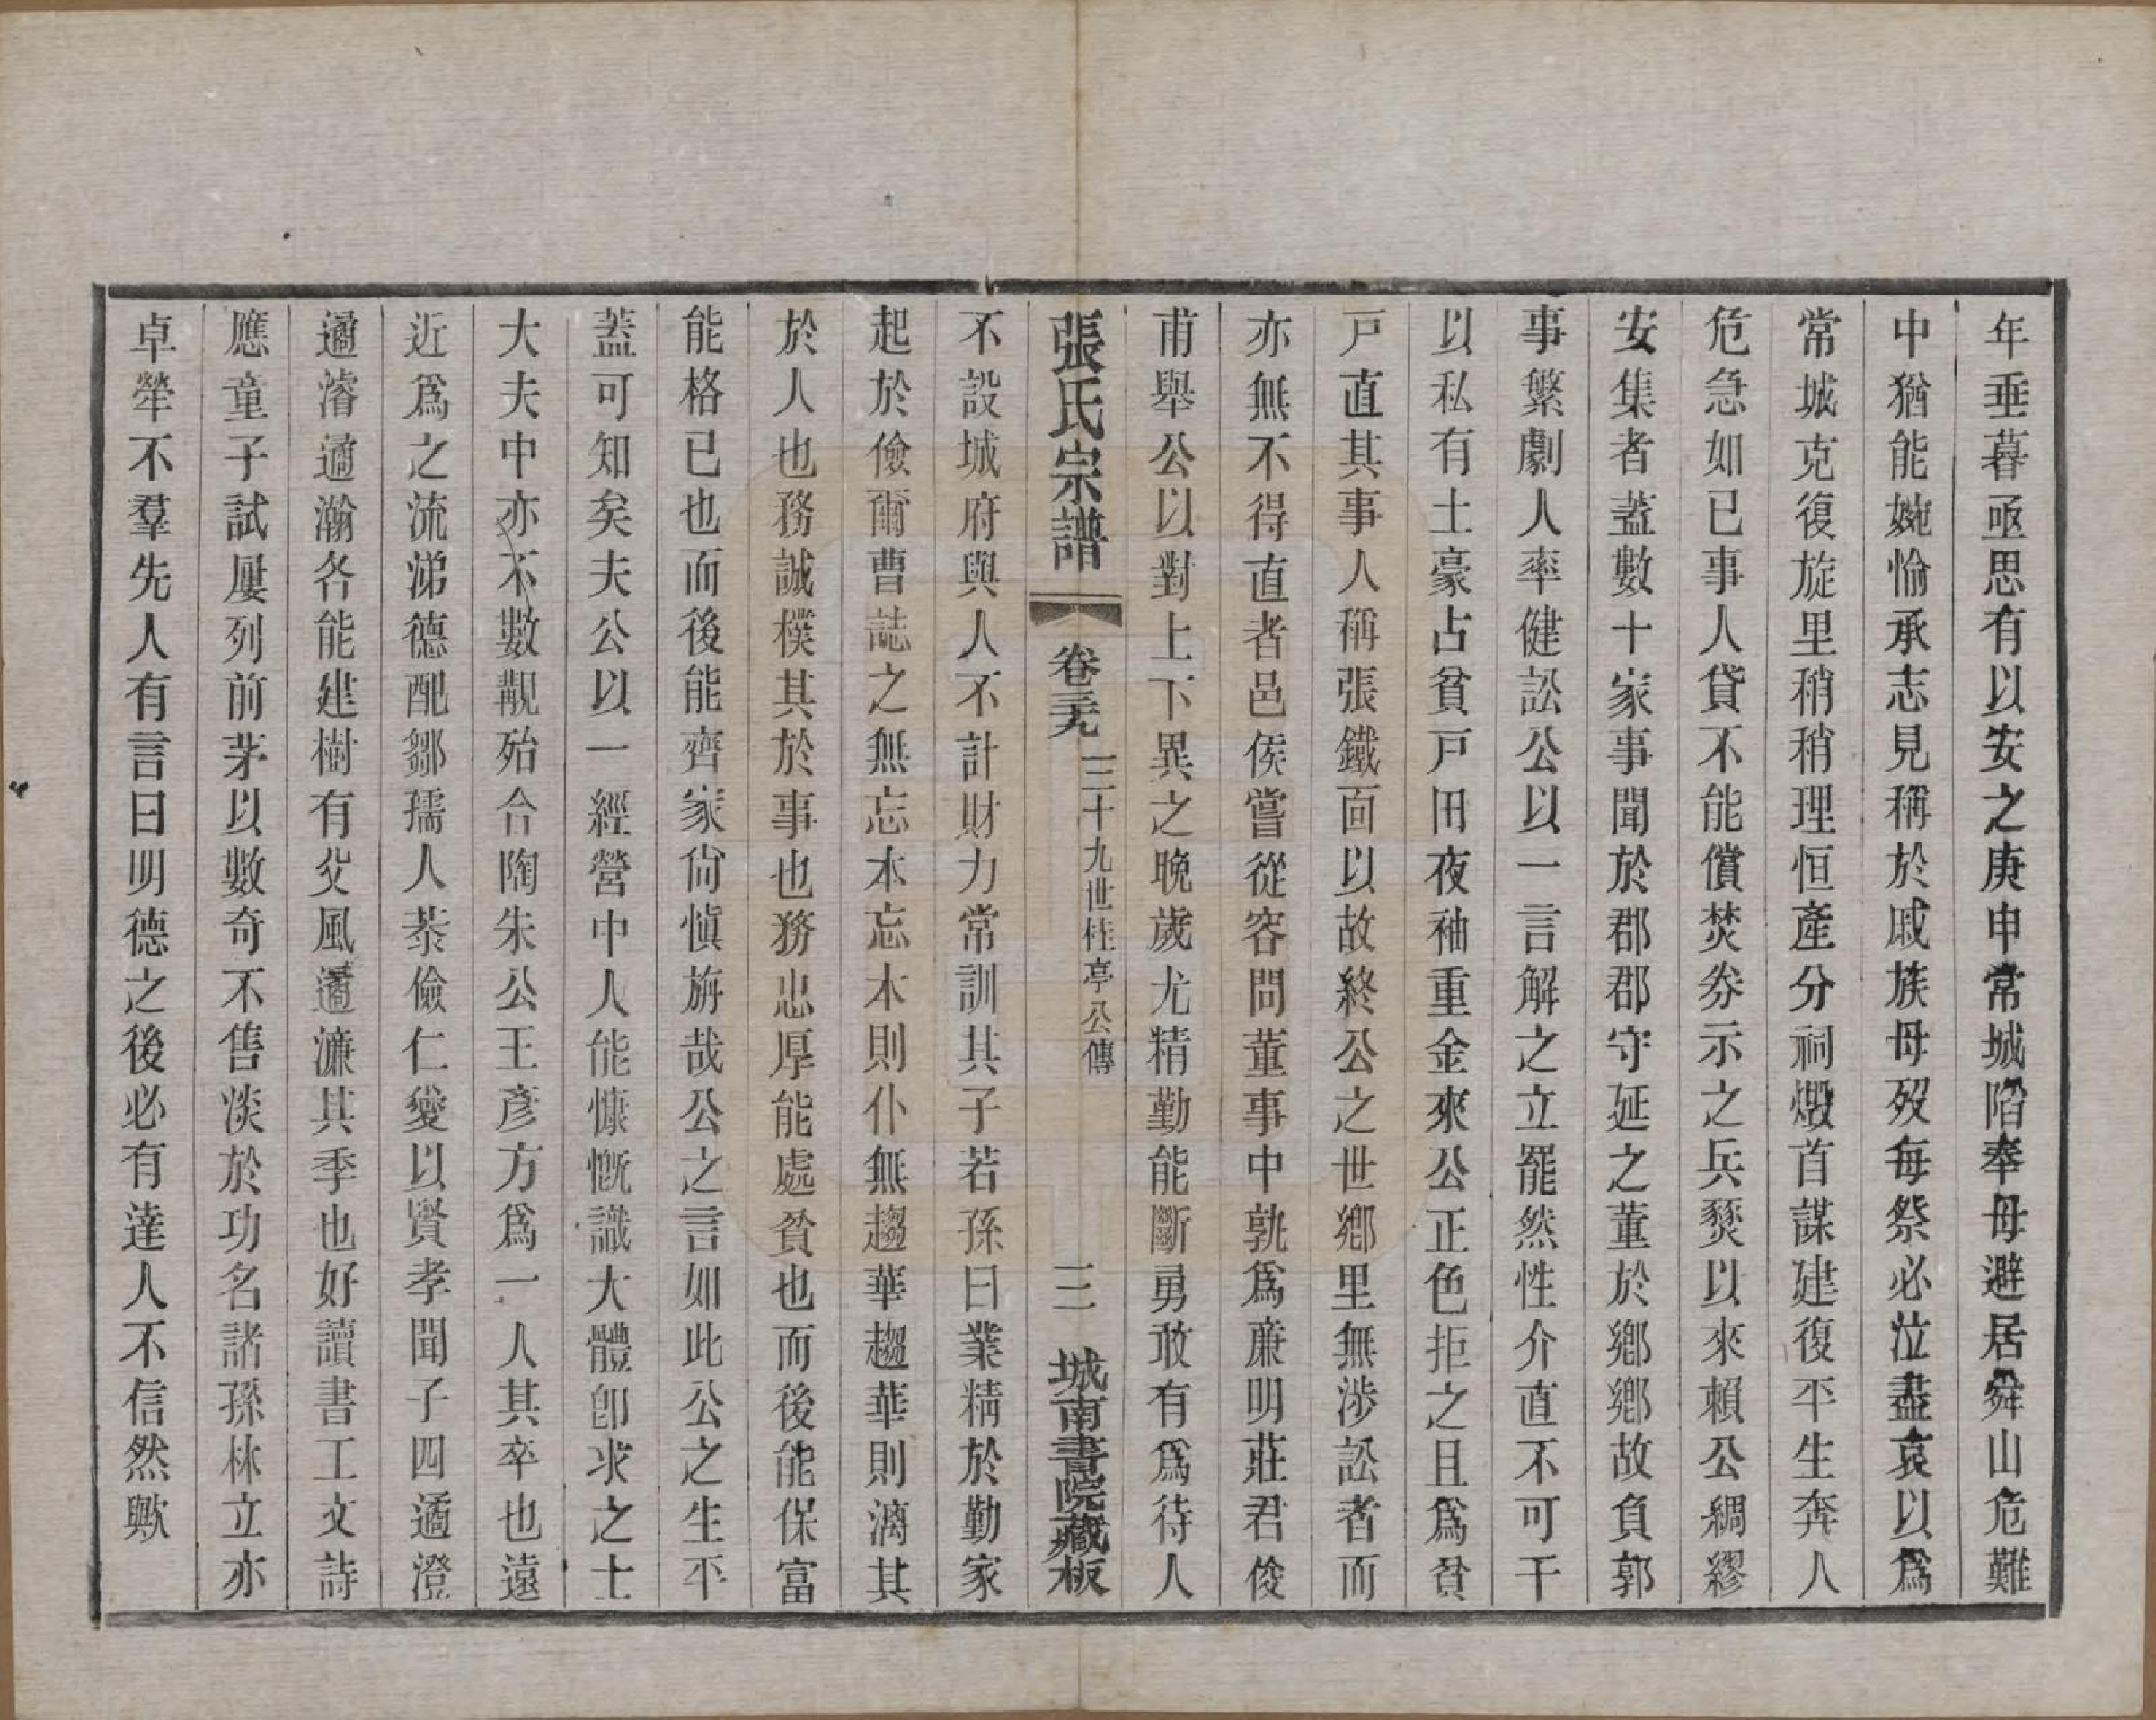 年垂暮亟思有以安之庚申常城陷奉母避居舜山危難
中猶能婉愉承志見稱於戚族母歿每祭必泣盡哀以爲
常城克復旋里稍稍理恒產分祠燬首謀建復平生奔人
危急如已事人貸不能償焚券示之兵燹以來賴公綢繆
安集者蓋數十家事聞於郡郡守延之董於鄉鄉故負郭
事繁劇人率健訟公以一言解之立罷然性介直不可干
以私有土豪占貧戸田夜袖重金來公正色拒之且爲貧
戸直其事人稱張鐵面以故終公之世鄉里無涉訟者而
亦無不得直者邑侯嘗從容問董事中孰爲廉明莊君俊
甫舉公以對上下異之晚歲尤精勤能斷勇敢有爲待人
張氏宗譜
卷三十九
三十九世桂亭公傳
三
城南書院藏板
不設城府與人不計財力常訓其子若孫曰業精於勤家
起於儉爾曹誌之無忘本忘本則仆無趨華趨華則漓其
於人也務誠樸其於事也務忠厚能處貧也而後能保富
能格已也而後能齊家尙愼旃哉公之言如此公之生平
蓋可知矣夫公以一經營中人能慷慨識大體卽求之士
大夫中亦不數覯殆合陶朱公王彥方爲一人其卒也遠
近爲之流涕德配鄒孺人恭儉仁愛以賢孝聞子四遹澄
遹濬遹瀚各能建樹有父風遹濂其季也好讀書工文詩
應童子試屢列前茅以數奇不售淡於功名諸孫林立亦
卓犖不羣先人有言曰明德之後必有達人不信然歟